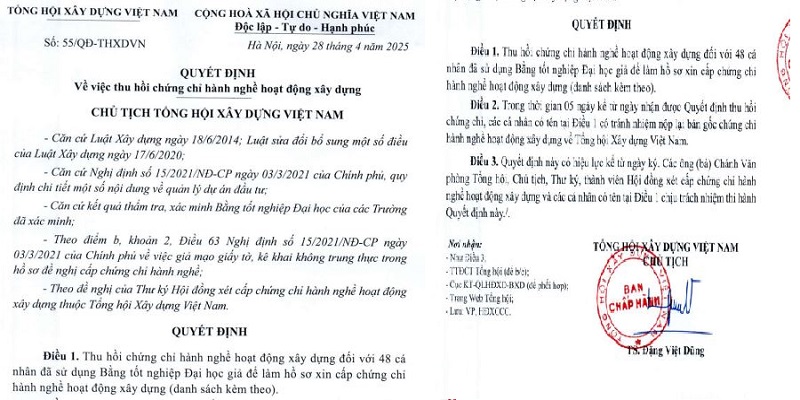 TỔNG HỘI XÂY DỰNG VIỆT NAM
CỘNG HOÀ XÃ HỘI CHỦ NGHĨA VIỆT NAM
Độc lập - Tự do - Hạnh phúc
Số: 55/QĐ-THXDVN
Hà Nội, ngày 28 tháng 4 năm 2025
QUYẾT ĐỊNH
Về việc thu hồi chứng chỉ hành nghề hoạt động xây dựng
CHỦ TỊCH TỔNG HỘI XÂY DỰNG VIỆT NAM
- Căn cứ Luật Xây dựng ngày 18/6/2014; Luật sửa đổi bổ sung một số điều
của Luật Xây dựng ngày 17/6/2020;
- Căn cứ Nghị định số 15/2021/NĐ-CP ngày 03/3/2021 của Chính phủ, quy
định chi tiết một số nội dung về quản lý dự án đầu tư;
- Căn cứ kết quả thẩm tra, xác minh Bằng tốt nghiệp Đại học của các Trường
đã xác minh;
- Theo điểm b, khoản 2, Điều 63 Nghị định số 15/2021/NĐ-CP ngày
03/3/2021 của Chính phủ về việc giả mạo giấy tờ, kê khai không trung thực trong
hồ sơ đề nghị cấp chứng chỉ hành nghề;
- Theo đề nghị của Thư ký Hội đồng xét cấp chứng chỉ hành nghề hoạt động
xây dựng thuộc Tổng hội Xây dựng Việt Nam.
QUYẾT ĐỊNH
Điều 1. Thu hồi chứng chỉ hành nghề hoạt động xây dựng đối với 48 cá
nhân đã sử dụng Bằng tốt nghiệp Đại học giả để làm hồ sơ xin cấp chứng chỉ
hành nghề hoạt động xây dựng (danh sách kèm theo).
QUYẾT ĐỊNH
Điều 1. Thu hồi chứng chỉ hành nghề hoạt động xây dựng đối với 48 cá
nhân đã sử dụng Bằng tốt nghiệp Đại học giả để làm hồ sơ xin cấp chứng chỉ
hành nghề hoạt động xây dựng (danh sách kèm theo).
Điều 2. Trong thời gian 05 ngày kể từ ngày nhận được Quyết định thu hồi
chứng chỉ, các cá nhân có tên tại Điều 1 có tránh nhiệm nộp lại bản gốc chứng chỉ
hành nghề hoạt động xây dựng về Tổng hội Xây dựng Việt Nam.
Điều 3. Quyết định này có hiệu lực kể từ ngày ký. Các ông (bà) Chánh Văn
phòng Tổng hội, Chủ tịch, Thư ký, thành viên Hội đồng xét cấp chứng chỉ hành
nghề hoạt động xây dựng và các cá nhân có tên tại Điều 1 chịu trách nhiệm thi hành
Quyết định này./.
Nơi nhận:
- Như Điều 3.
- TTĐCT Tổng hội (để b/c);
- Cục KT-QLHĐXD-BXD (để phối hợp);
- Trang Web Tổng hội;
- Lưu: VP, HĐXCCC.
TỔNG HỘI XÂY DỰNG VIỆT NAM
CHỦ TỊCH
BAN
CHẤP HÀNH
TS. Đặng Việt Dũng